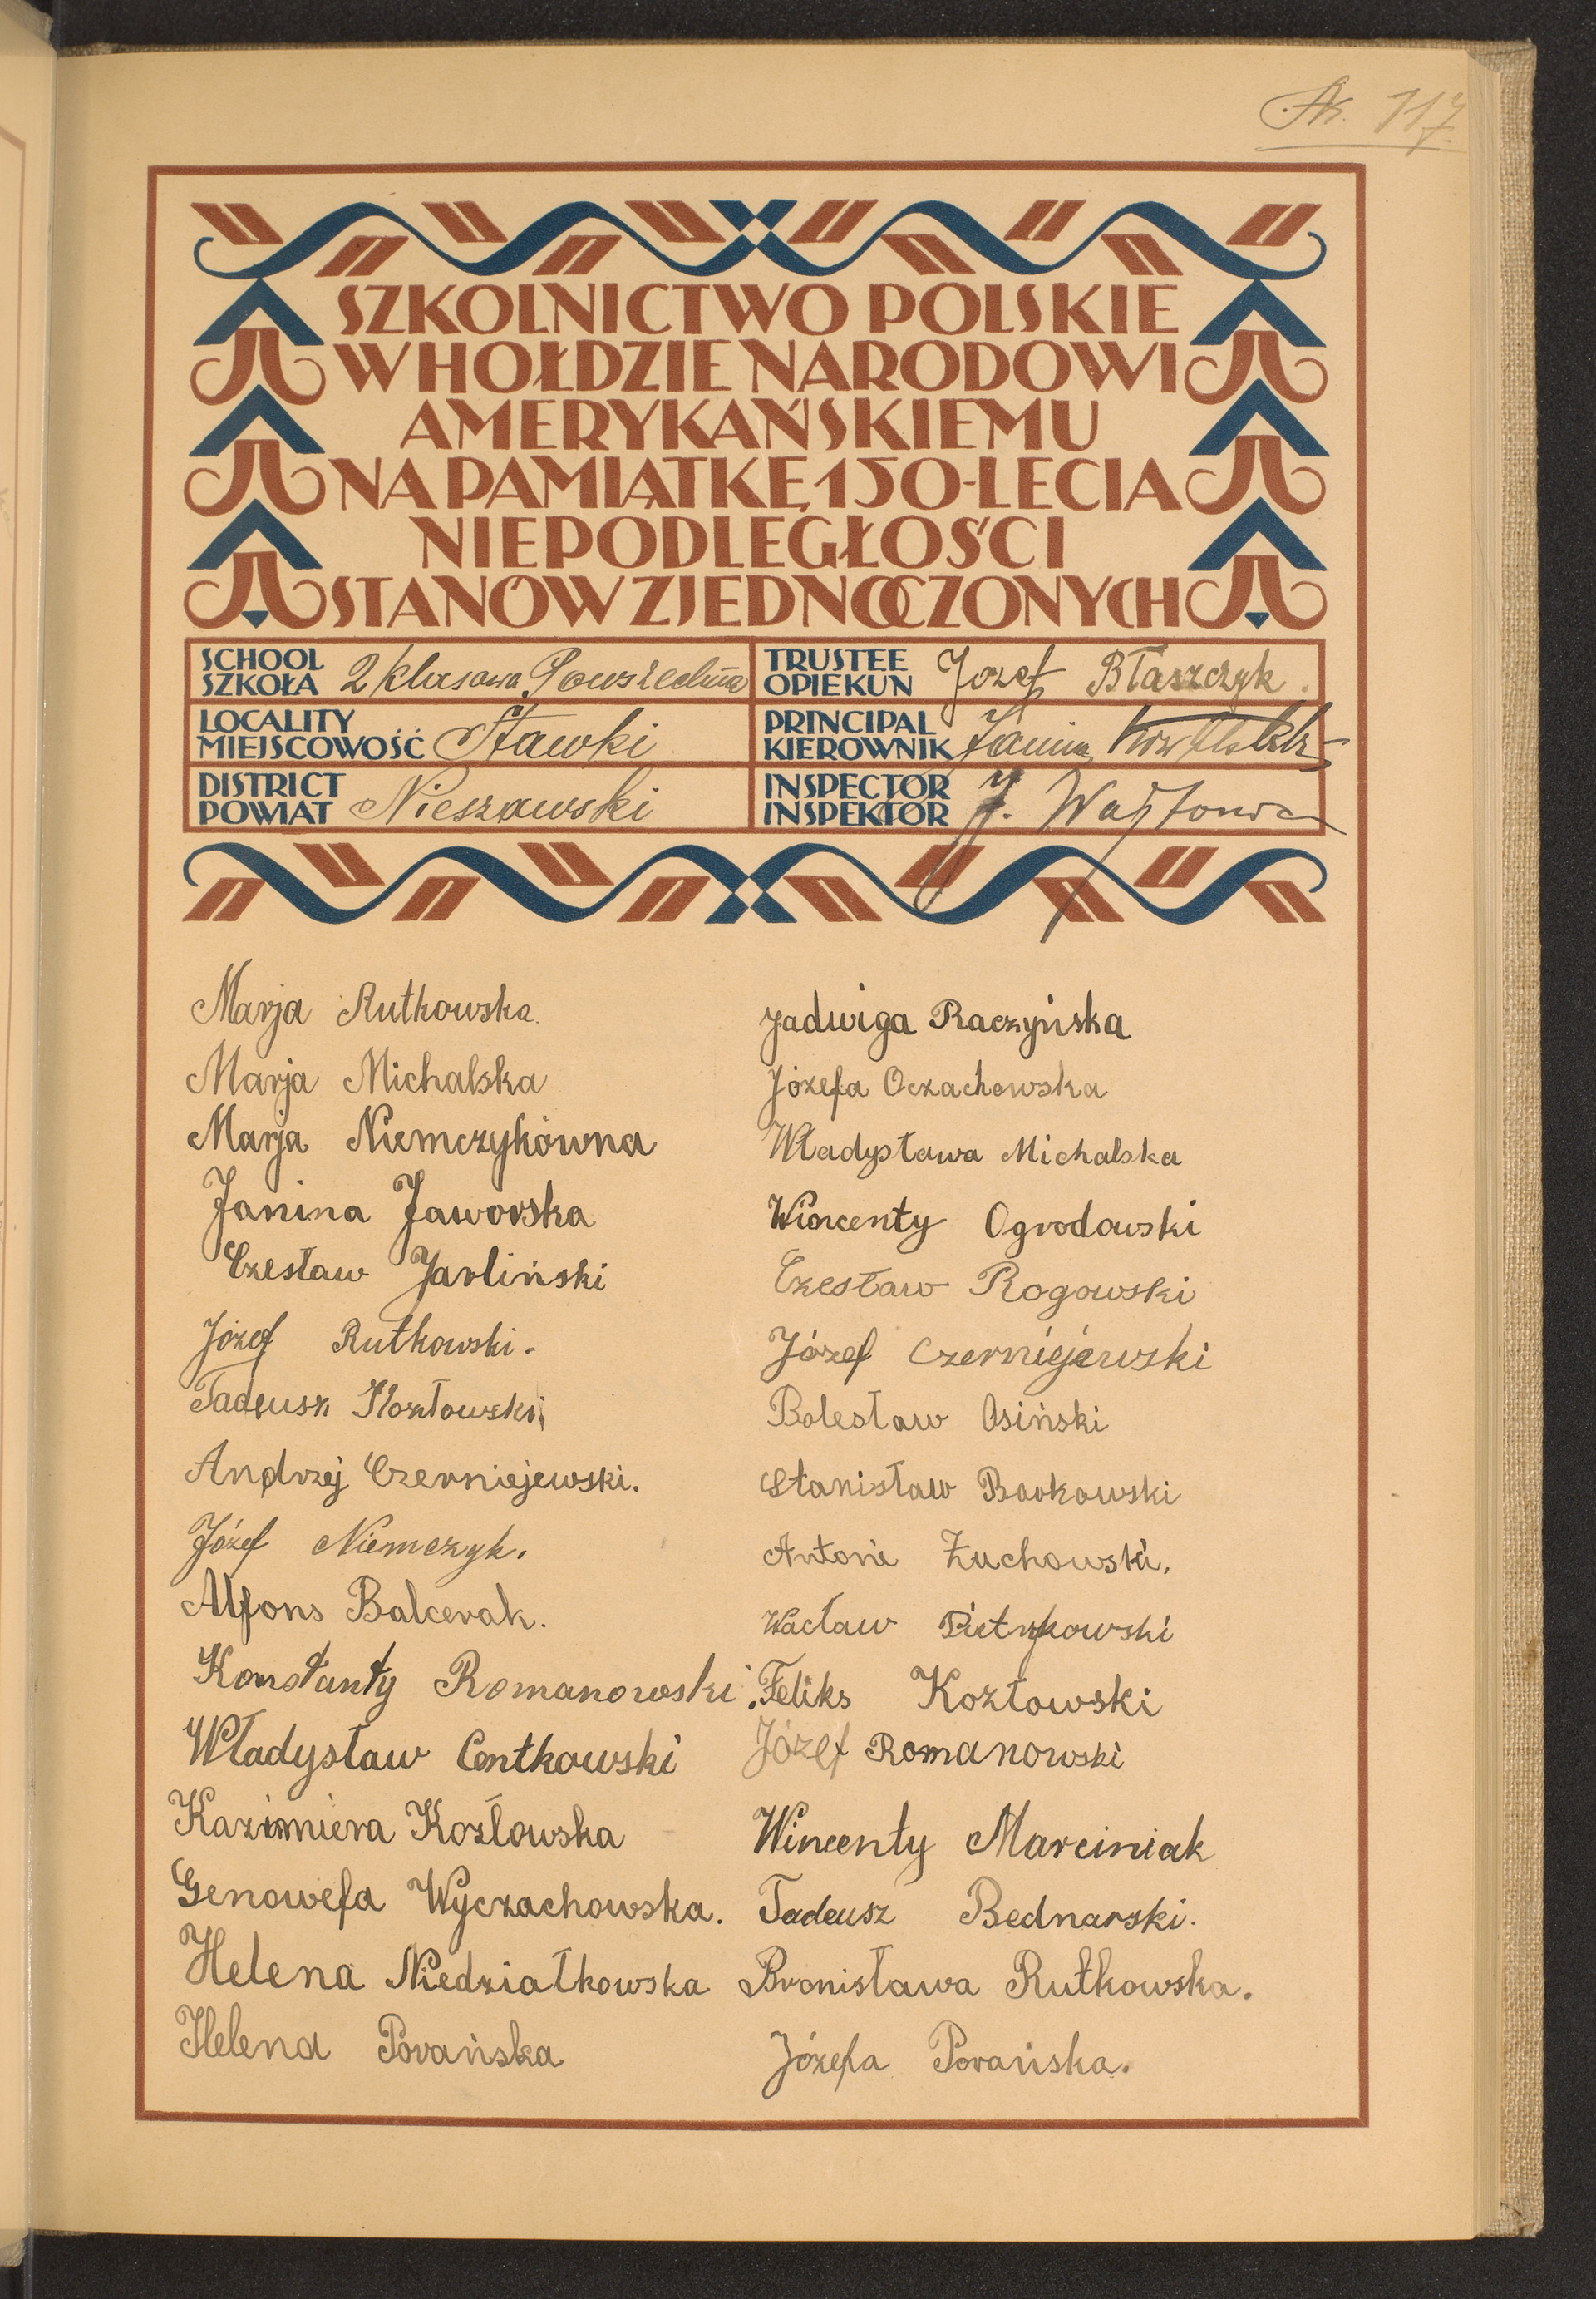 117
SZKOLNICTWO POLSKIE
W HOŁDZIE NARODOWI
AMERYKAŃSKIEMU
NA PAMIĄTKĘ 150-LECIA
NIEPODLEGŁOŚCI
STANÓW ZJEDNOCZONYCH
SCHOOL
SZKOŁA 2 klasowa Powszechna
TRUSTEE
OPIEKUN Jozef Błaszczyk.
LOCALITY
MIEJSCOWOŚĆ Stawki
PRINCIPAL
KIEROWNIK Janina
DISTRICT
POWIAT Nieszawski
INSPECTOR
INSPEKTOR J.
Marja Rutkowska.
Marja Michalska
Marja Niemczykówna
Janina Jaworska
Czesław Jarliński
Józef Rutkowski.
Tadeusz Kozłowski
Andrzej Czerniejewski.
Józef Niemczyk.
Alfons Balcerak.
Konstanty Romanowski.
Władysław Centkowski
Kazimiera Kozlowska
Genowefa Wyczachowska.
Helena Niedziałkowska
Helena Porańska
Jadwiga Raczyńska
Józefa Oczachowska
Władysława Michalska
Wincenty Ogrodowski
Czesław Rogowski
Józef Czerniejewski
Bolesław Osiński
Stanisław Borkowski
Antoni Żuchowski.
Wacław Pietrykowski
Feliks Kozłowski
Józef Romanowski
Wincenty Marciniak
Tadeusz Bednarski.
Bronisława Rutkowska.
Józefa Porańska.